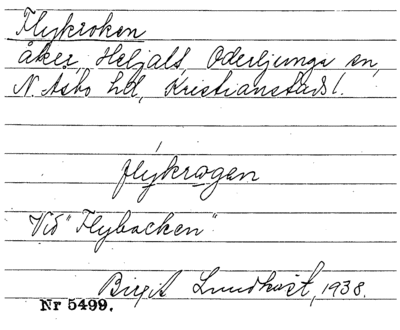 Flykroken
åker, Heljalt, Oderljunga sn,
N. Åsbo hd, Kristianstads l.
flýkrogen
Vid "Flybacken".
Birgit Lundkvist, 1938.
Nr 5499.